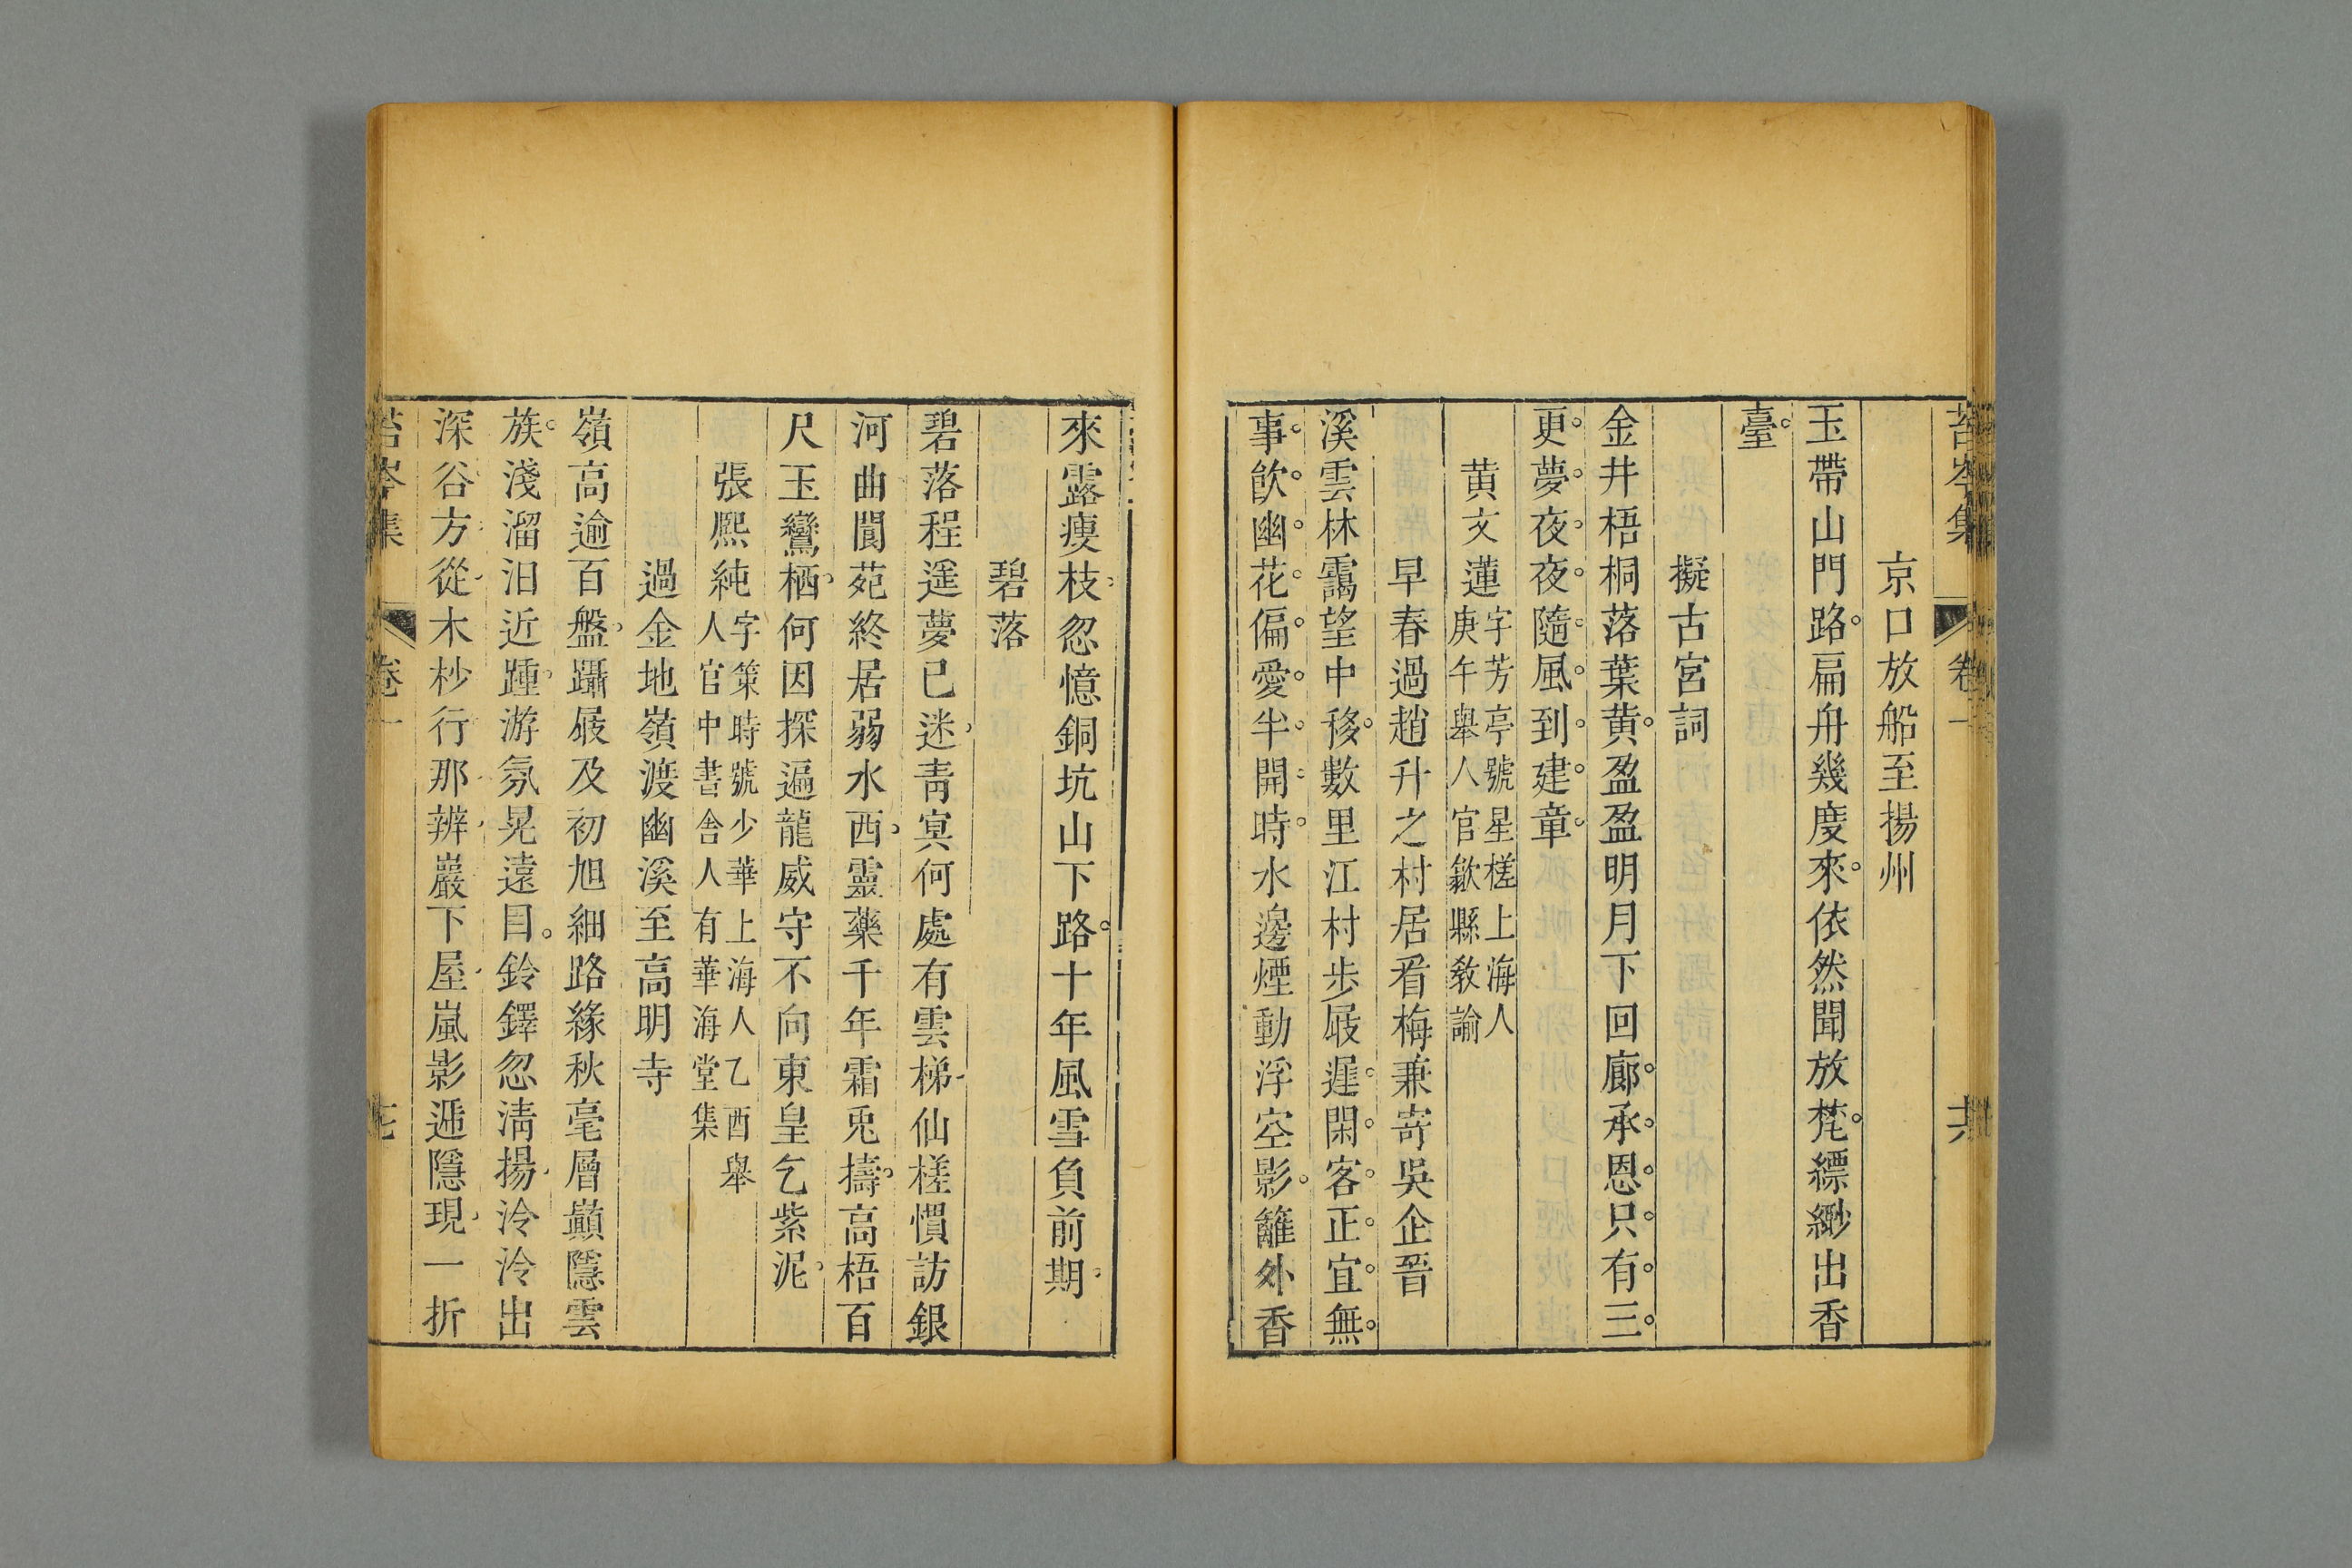 苔岑集 卷一 共
京口放船至揚州
玉帶山門路。扁舟幾度來。依然聞放梵。縹緲出香
臺。
擬古宮詞
金井梧桐落葉黄。盈盈明月下回廊。承恩只有三
更夢。夜夜隨風到建章。
黄文蓮字芳亭號星槎上海人
庚午舉人官歙縣教諭
早春過趙升之村居看梅兼寄吳企晉
溪雲林靄望中移。數里江村步屐遲。閑客正宜無
事飲。幽花偏愛半開時。水邊煙動浮空影。籬外香
來露瘦枝。忽憶銅坑山下路。十年風雪負前期。
碧落
碧落程遥夢已迷。青冥何處有雲梯。仙槎慣訪銀
河曲。閬苑終居弱水西。靈藥千年霜兎擣。高梧百
尺玉鸞栖。何因探遍龍威守。不向東皇乞紫泥。
張熈純字策時號少華上海人乙酉舉
人官中書舎人有華海堂集
過金地嶺渡幽溪至高明寺
嶺高逾百盤。躡屐及初旭。細路緣秋毫。層巔隱雲
族。淺溜汨近踵。游氛晃遠目。鈴鐸忽淸揚。泠泠出
深谷。方從木杪行。那辨巖下屋。嵐影遞隱現。一折
苔岑集 卷一